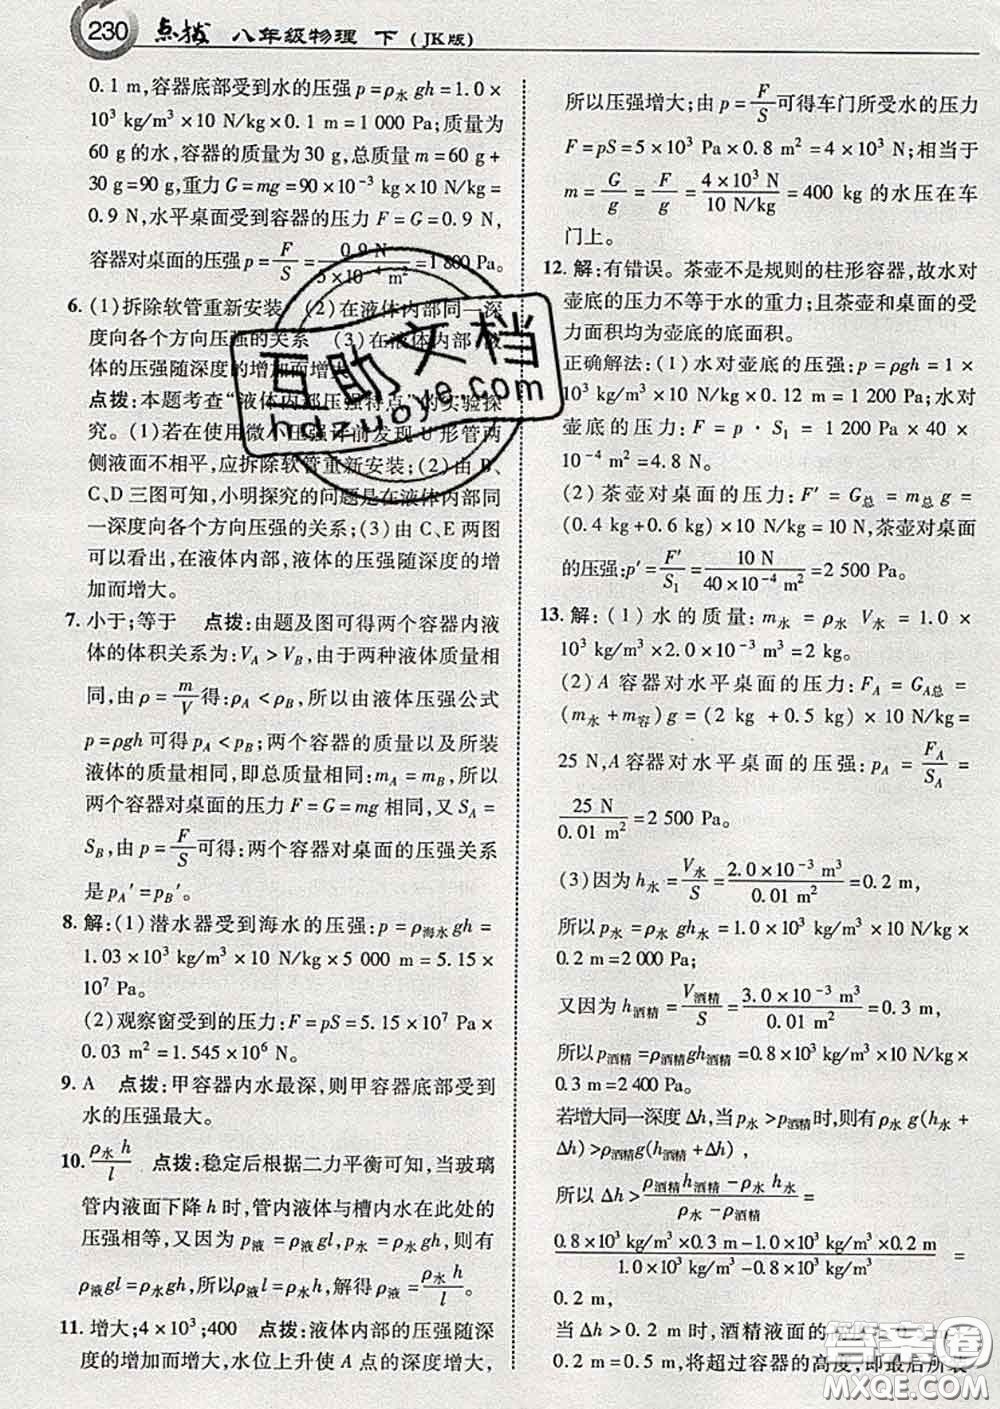 230 点拨 八年级物理 下 (JK版)
0.1 m,容器底部受到水的压强 p=ρ水 gh=1.0×
10³ kg/m³×10 N/kg×0.1 m=1 000 Pa;质量为
60 g 的水,容器的质量为 30 g,总质量 m=60 g+
30 g=90 g,重力 G=mg=90×10⁻³ kg×10 N/kg=
0.9 N,水平桌面受到容器的压力 F=G=0.9 N,
容器对桌面的压强 p=F/S=0.9 N/(5×10⁻⁴ m²)=1 800 Pa。
6. (1)拆除软管重新安装 (2)在液体内部同一深
度向各个方向压强的关系 (3)在液体内部,液
体的压强随深度的增加而增大
点拨:本题考查“液体内部压强特点”的实验探
究。(1)若在使用微小压强计前发现 U 形管两
侧液面不相平,应拆除软管重新安装;(2)由 B、
C、D 三图可知,小明探究的问题是在液体内部同
一深度向各个方向压强的关系;(3)由 C、E 两图
可以看出,在液体内部,液体的压强随深度的增
加而增大。
7. 小于;等于 点拨:由题及图可得两个容器内液
体的体积关系为:V_A>V_B,由于两种液体质量相
同,由 ρ=m/V 得:ρ_A<ρ_B,所以由液体压强公式
p=ρgh 可得 p_A<p_B;两个容器的质量以及所装
液体的质量相同,即总质量相同:m_A=m_B,所以
两个容器对桌面的压力 F=G=mg 相同,又 S_A=
S_B,由 p=F/S 可得:两个容器对桌面的压强关系
是 p_A′=p_B′。
8. 解:(1)潜水器受到海水的压强:p=ρ海水gh=
1.03×10³ kg/m³×10 N/kg×5 000 m=5.15×
10⁷ Pa。
(2)观察窗受到的压力:F=pS=5.15×10⁷ Pa×
0.03 m²=1.545×10⁶ N。
9. A 点拨:甲容器内水最深,则甲容器底部受到
水的压强最大。
10. ρ水 h/l 点拨:稳定后根据二力平衡可知,当玻璃
管内液面下降 h 时,管内液体与槽内水在此处的
压强相等,又因为 p液=ρ液gl,p水=ρ水gh,即
ρ液gl=ρ水gh,所以ρ液l=ρ水h,解得ρ液=ρ水 h/l。
11. 增大;4×10³;400 点拨:液体内部的压强随深
度的增加而增大,水位上升使 A 点的深度增大,
所以压强增大;由 p=F/S 可得车门所受水的压力
F=pS=5×10³ Pa×0.8 m²=4×10³ N;相当于
m=G/g=F/g=4×10³ N/(10 N/kg)=400 kg 的水压在车
门上。
12. 解:有错误。茶壶不是规则的柱形容器,故水对
壶底的压力不等于水的重力;且茶壶和桌面的受
力面积均为壶底的底面积。
正确解法:(1)水对壶底的压强:p=ρgh=1×
10³ kg/m³×10 N/kg×0.12 m=1 200 Pa,水对
壶底的压力:F=p·S₁=1 200 Pa×40×
10⁻⁴ m²=4.8 N。
(2)茶壶对桌面的压力:F′=G总=m总g=
(0.4 kg+0.6 kg)×10 N/kg=10 N,茶壶对桌面
的压强:p′=F′/S₁=10 N/(40×10⁻⁴ m²)=2 500 Pa。
13. 解:(1)水的质量:m水=ρ水 V水=1.0×
10³ kg/m³×2.0×10⁻³ m³=2 kg。
(2)A 容器对水平桌面的压力:F_A=G_A总=
(m水+m容)g=(2 kg+0.5 kg)×10 N/kg=
25 N,A容器对水平桌面的压强:p_A=F_A/S_A=
25 N/0.01 m²=2 500 Pa。
(3)因为 h水=V水/S=2.0×10⁻³ m³/0.01 m²=0.2 m,
所以 p水=ρ水 gh水=1.0×10³ kg/m³×10 N/kg×
0.2 m=2 000 Pa;
又因为 h酒精=V酒精/S=3.0×10⁻³ m³/0.01 m²=0.3 m,
所以 p酒精=ρ酒精gh酒精=0.8×10³ kg/m³×10 N/kg×
0.3 m=2 400 Pa。
若增大同一深度 Δh,当 p水>p酒精时,则有 ρ水 g(h水+
Δh)>ρ酒精g(h酒精+Δh)。
所以 Δh>(ρ酒精h酒精−ρ水 h水)/(ρ水−ρ酒精)=
(0.8×10³ kg/m³×0.3 m−1.0×10³ kg/m³×0.2 m)/(1.0×10³ kg/m³−0.8×10³ kg/m³)=
0.2 m,
当 Δh>0.2 m 时,酒精液面的
0.2 m=0.5 m,将超过容器的高度,即最后所装
互助文档
hdzuoye.com
答案圈
MXQE.COM